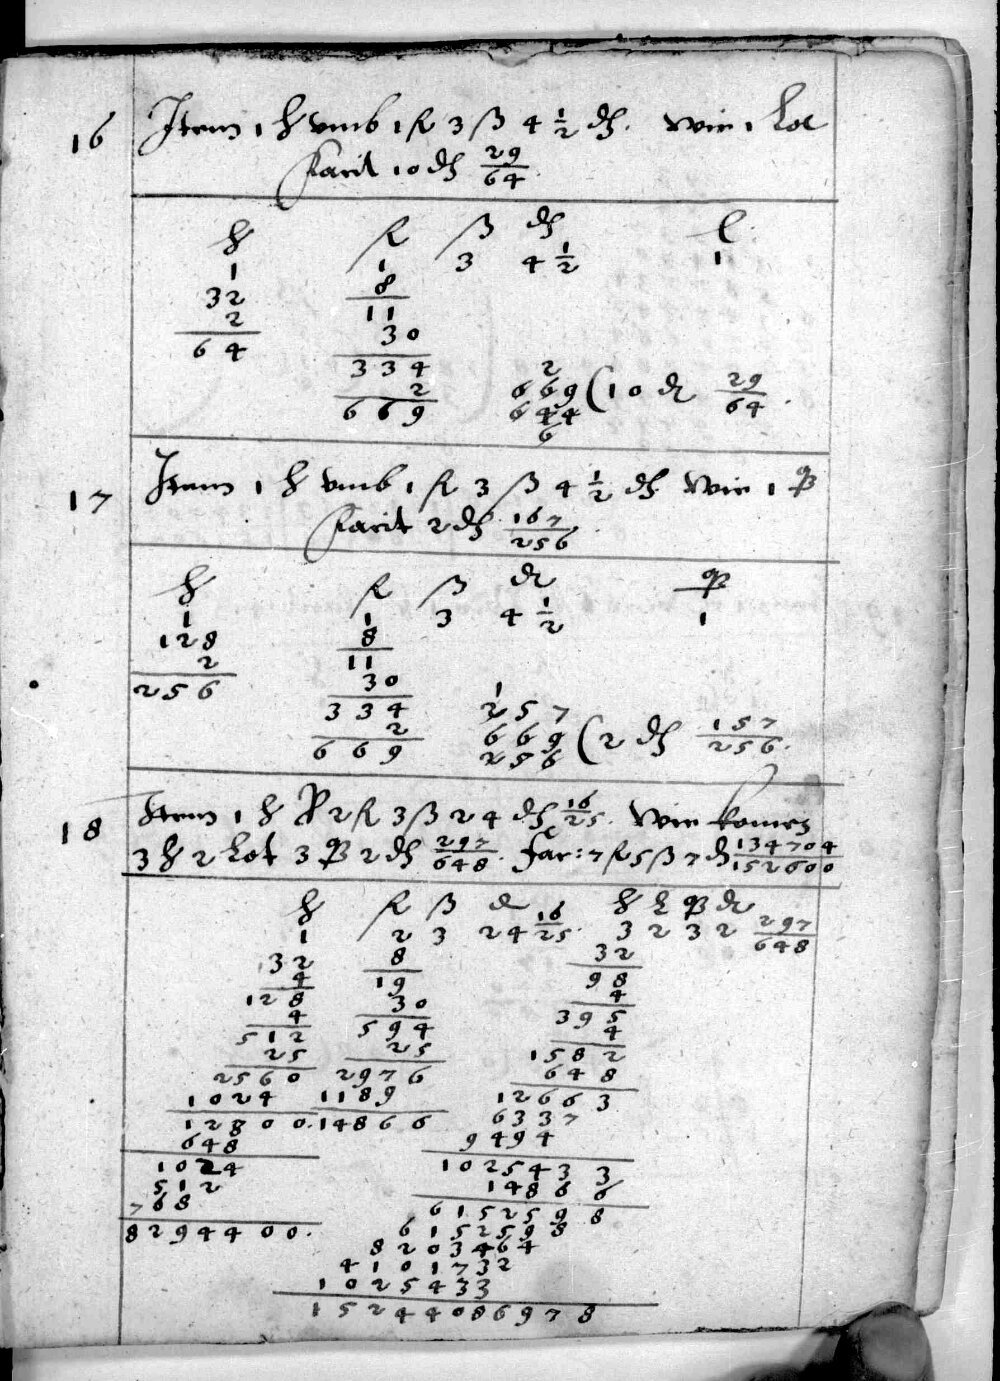 16 Item 1 ℔ vmb 1 fl 3 ß 4 1/2 ₰. Wie 1 Lot
facit 10 ₰ 29/64
℔ fl ß ₰ l
1 1 3 4 1/2 1
32 8
2 11
64 30
334
2
669
2
669 ( 10 ₰ 29/64.
644
6
17 Item 1 ℔ vmb 1 fl 3 ß 4 1/2 ₰ Wie 1 q
facit 2 ₰ 167/256
℔ fl ß ₰ q
1 1 3 4 1/2 1
128 8
2 11
256 30
334
2
669
1
257
669 ( 2 ₰ 157/256.
256
18 Item 1 ℔ P 2 fl 3 ß 24 ₰ 16/25. Wie komen
3 ℔ 2 Lot 3 q 2 ₰ 297/648. fac: 7 fl 5 ß 7 ₰ 134704/152600
℔ fl ß ₰ ℔ l q ₰
1 2 3 24 16/25. 3 2 3 2 297/648
32 8 32
4 19 98
128 30 4
4 594 395
512 25 4
25 2976 1582
2560 1189 648
1024 14866 12663
12800. 6337
648 9494
1024 1025433
512 14866
768 6152598
8294400. 6152598
8203464
4101732
1025433
15244086978